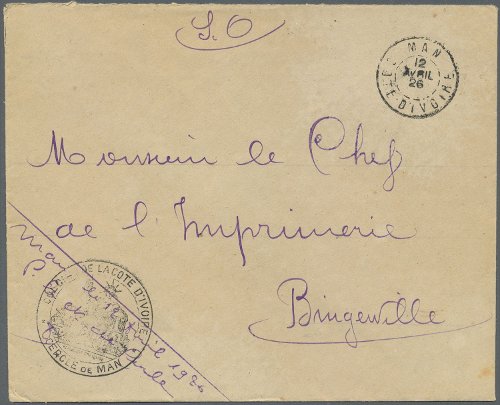 S. O
MAN
12
AVRIL
26
CÔTE D'IVOIRE
Monsieur le Chef
de l'Imprimerie
Bingerville
COLONIE DE LA COTE D'IVOIRE
CERCLE DE MAN
Man, le 12 avril 1926